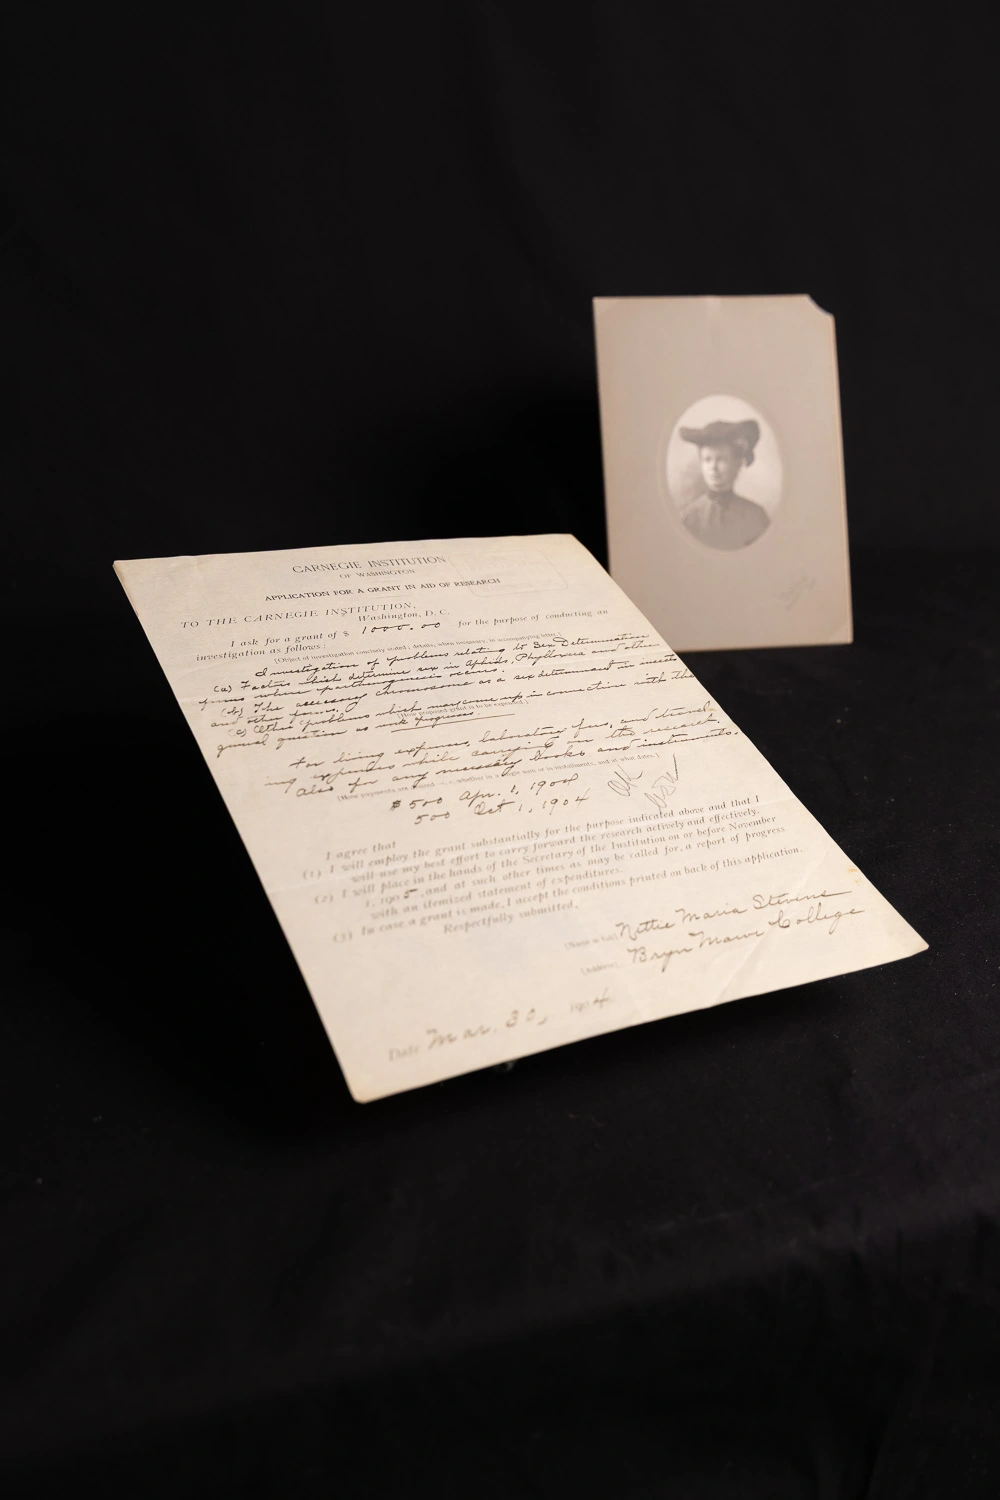 CARNEGIE INSTITUTION
OF WASHINGTON
APPLICATION FOR A GRANT IN AID OF RESEARCH
TO THE CARNEGIE INSTITUTION,
Washington, D. C.
I ask for a grant of $ 1000.00 for the purpose of conducting an
investigation as follows:
[Object of investigation concisely stated; details, when necessary, in accompanying letter.]
Investigation of problems relating to Sex Determination
(a) Factors which determine sex in Aphids, Phylloxera and other
forms where parthenogenesis occurs.
(b) The accessory chromosome as a sex determinant in insects
and other forms.
(c) Other problems which may come up in connection with the
general question as work progresses.
[How proposed grant is to be expended.]
For living expenses, laboratory fees, and travel-
ing expenses while carrying on the research.
Also for any necessary books and instruments.
[How payments are desired whether in a single sum or in installments, and at what dates.]
$500 Apr. 1, 1904
500 Oct 1, 1904
OK
I agree that
(1) I will employ the grant substantially for the purpose indicated above and that I
will use my best effort to carry forward the research actively and effectively.
(2) I will place in the hands of the Secretary of the Institution on or before November
1, 1905, and at such other times as may be called for, a report of progress
with an itemized statement of expenditures.
(3) In case a grant is made, I accept the conditions printed on back of this application.
Respectfully submitted,
[Name in full] Nettie Maria Stevens
[Address] Bryn Mawr College
Date Mar. 30, 1904